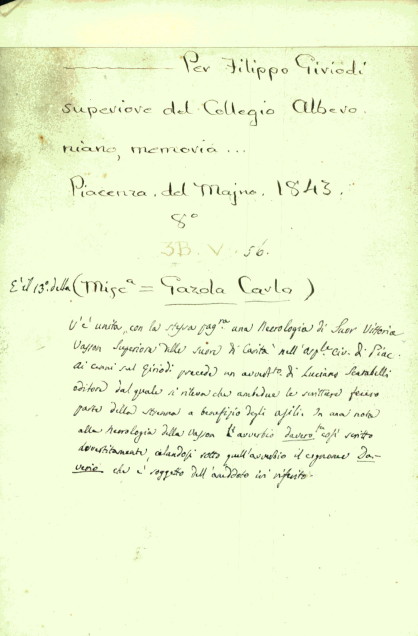 Per Filippo Giriodi
superiore del Collegio Albero-
niano, memoria ...
Piacenza. del Majno. 1843.
8°
3B. V. 56.
E' il 13°. della (Misc.ª = Gazola Carlo)
V'è unita, con la stessa pag.ra una Necrologia di Suor Vittoria
Vasson Superiora delle suore di Carità nell'osp.le Civ. di Piac.
Ai cenni sul Giriodi precede un avvert.to di Luciano Scarabelli
editore dal quale si rileva che ambedue le scritture fecero
parte della strenna a benefizio degli asili. In una nota
alla Necrologia della Vasson l'avverbio davvero così scritto
avvertitamente, celandosi sotto quell'avverbio il cognome Da-
verio che è soggetto dell'aneddoto ivi riferito.